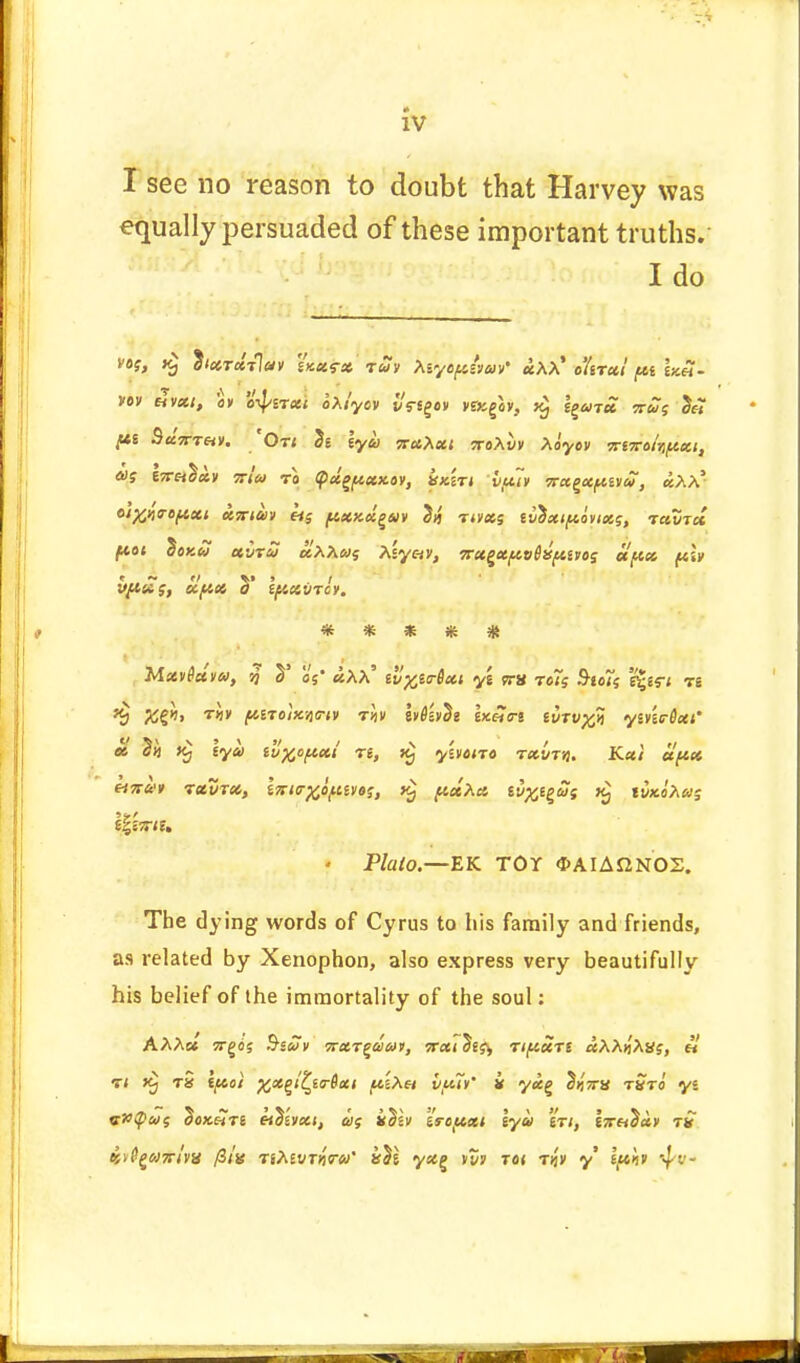 iv
I see no reason to doubt that Harvey was
equally persuaded of these important truths.
I do
νος, ϗ διατάτ̔ων ἕκαϛα τῶν λεγομένων· ἀλλ' οἴεταί με ἐκεῖ-
νον εἶναι, ὃν ὄψεται ὀλίγον ὕϛερον νεκρὸν, ϗ ἐρωτᾷ πῶς δεῖ
με θάπτειν. Ὅτι δὲ ἐγὼ πάλαι πολὺν λόγον πεποίημαι,
ὡς ἐπειδὰν πίω τὸ φάρμακον, ȣκέτι ὑμῖν παραμενῶ, ἀλλ'
οἰχήσομαι ἀπιὼν εἰς μακάρων δή τινας εὐδαιμονίας, ταῦτά
μοι δοκῶ αὐτῷ ἄλλως λέγειν, παραμυθȣμενος ἅμα μὲν
ὑμᾶς, ἅμα δ' ἐμαυτόν.
* * * * *
Μανθάνω, ἦ δ' ὅς· ἀλλ' εὔχεσθαι γέ πȣ τοῖς θεοῖς ἔξεϛι τε
ϗ χρὴ, τὴν μετοίκησιν τὴν ἐνθένδε ἐκεῖσε εὐτυχῆ γενέσθαι·
ἃ δὴ ϗ ἐγὼ εὔχομαί τε, ϗ γένοιτο ταύτῃ. Καὶ ἅμα
εἰπὼν ταῦτα, ἐπισχόμενος, ϗ μάλα εὐχερῶς ϗ εὐκόλως
ἐξέπιε.
Plato.—ΕΚ ΤΟΥ ΦΑΙΔΩΝΟΣ.
The dying words of Cyrus to his family and friends,
as related by Xenophon, also express very beautifully
his belief of the immortality of the soul:
Αλλὰ πρὸς θεῶν πατρώων, παῖδες, τιμᾶτε ἀλλήλȣς, εἴ
τι ϗ τȣ ἐμοὶ χαρίζεσθαι μέλει ὑμῖν· ȣ γὰρ δήπȣ τȣτό γε
σαφῶς δοκεῖτε εἰδέναι, ὡς ȣδέν ἔσομαι ἐγὼ ἔτι, ἐπειδὰν τȣ
ἀνθρωπίνȣ βίȣ τελευτήσω· ȣδὲ γὰρ νῦν τοι τήν γ' ἐμὴν ψυ-